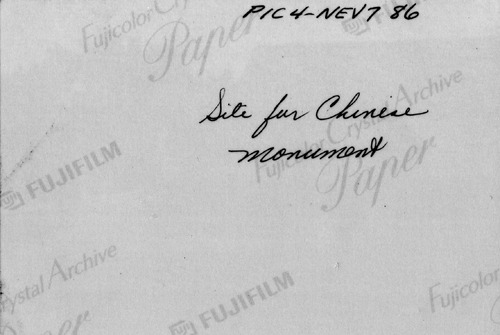 PIC4-NEV7 86
Fujicolor Crystal Archive
Paper
Site for Chinese
Monument
Fujicolor Crystal Archive
Paper
FUJIFILM
Crystal Archive
Paper
FUJIFILM
Fujicolor